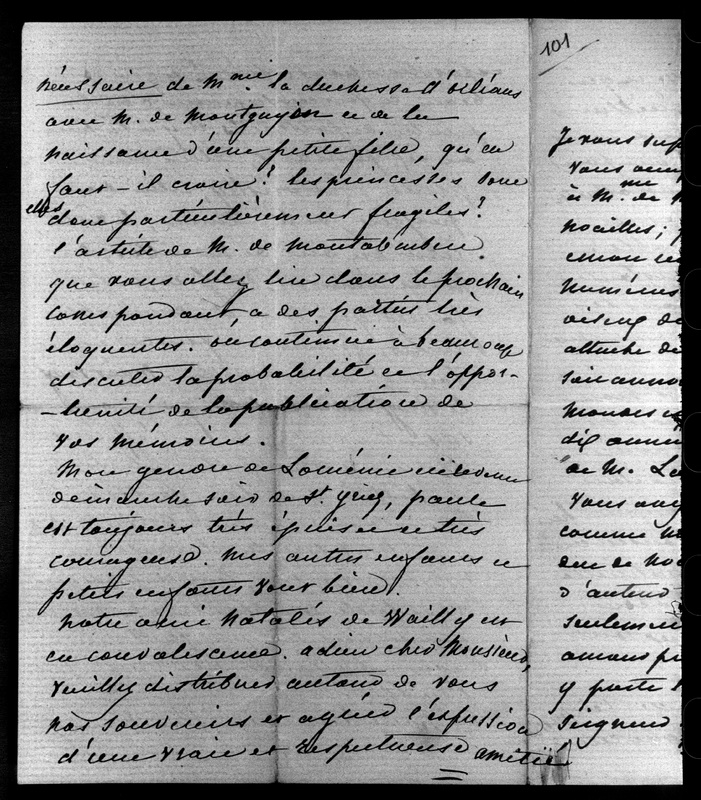 101
nécessaire de Mme la duchesse d'orléans
avec M. de Montguyon et de la
naissance d'une petite fille, qu'en
faut-il croire? les princesses sont
elles donc particulièrement fragiles?
l'article de M. de Montalembert
que vous allez lire dans le prochain
correspondant a des parties très
éloquentes. on continue à beaucoup
discuter la probabilité et l'oppor-
-tunité de la publication de
vos mémoires.
Mon gendre de Loménie est revenu
dimanche soir de St. yrieix, paule
est toujours très épuisée et très
courageuse. mes autres enfants et
petits enfants vont bien.
notre ami Natalis de Wailly est
en convalescence. adieu cher Monsieur,
veuillez distribuer autour de vous
nos souvenirs et agréer l'expression
d'une vraie et respectueuse amitié
Je vous sup
vous
à Mme de
noailles;
numéros
attache
son
Mondes
dix
de M. La
vous
comme
d'autend
seulemen
amans
y porte
seigneur